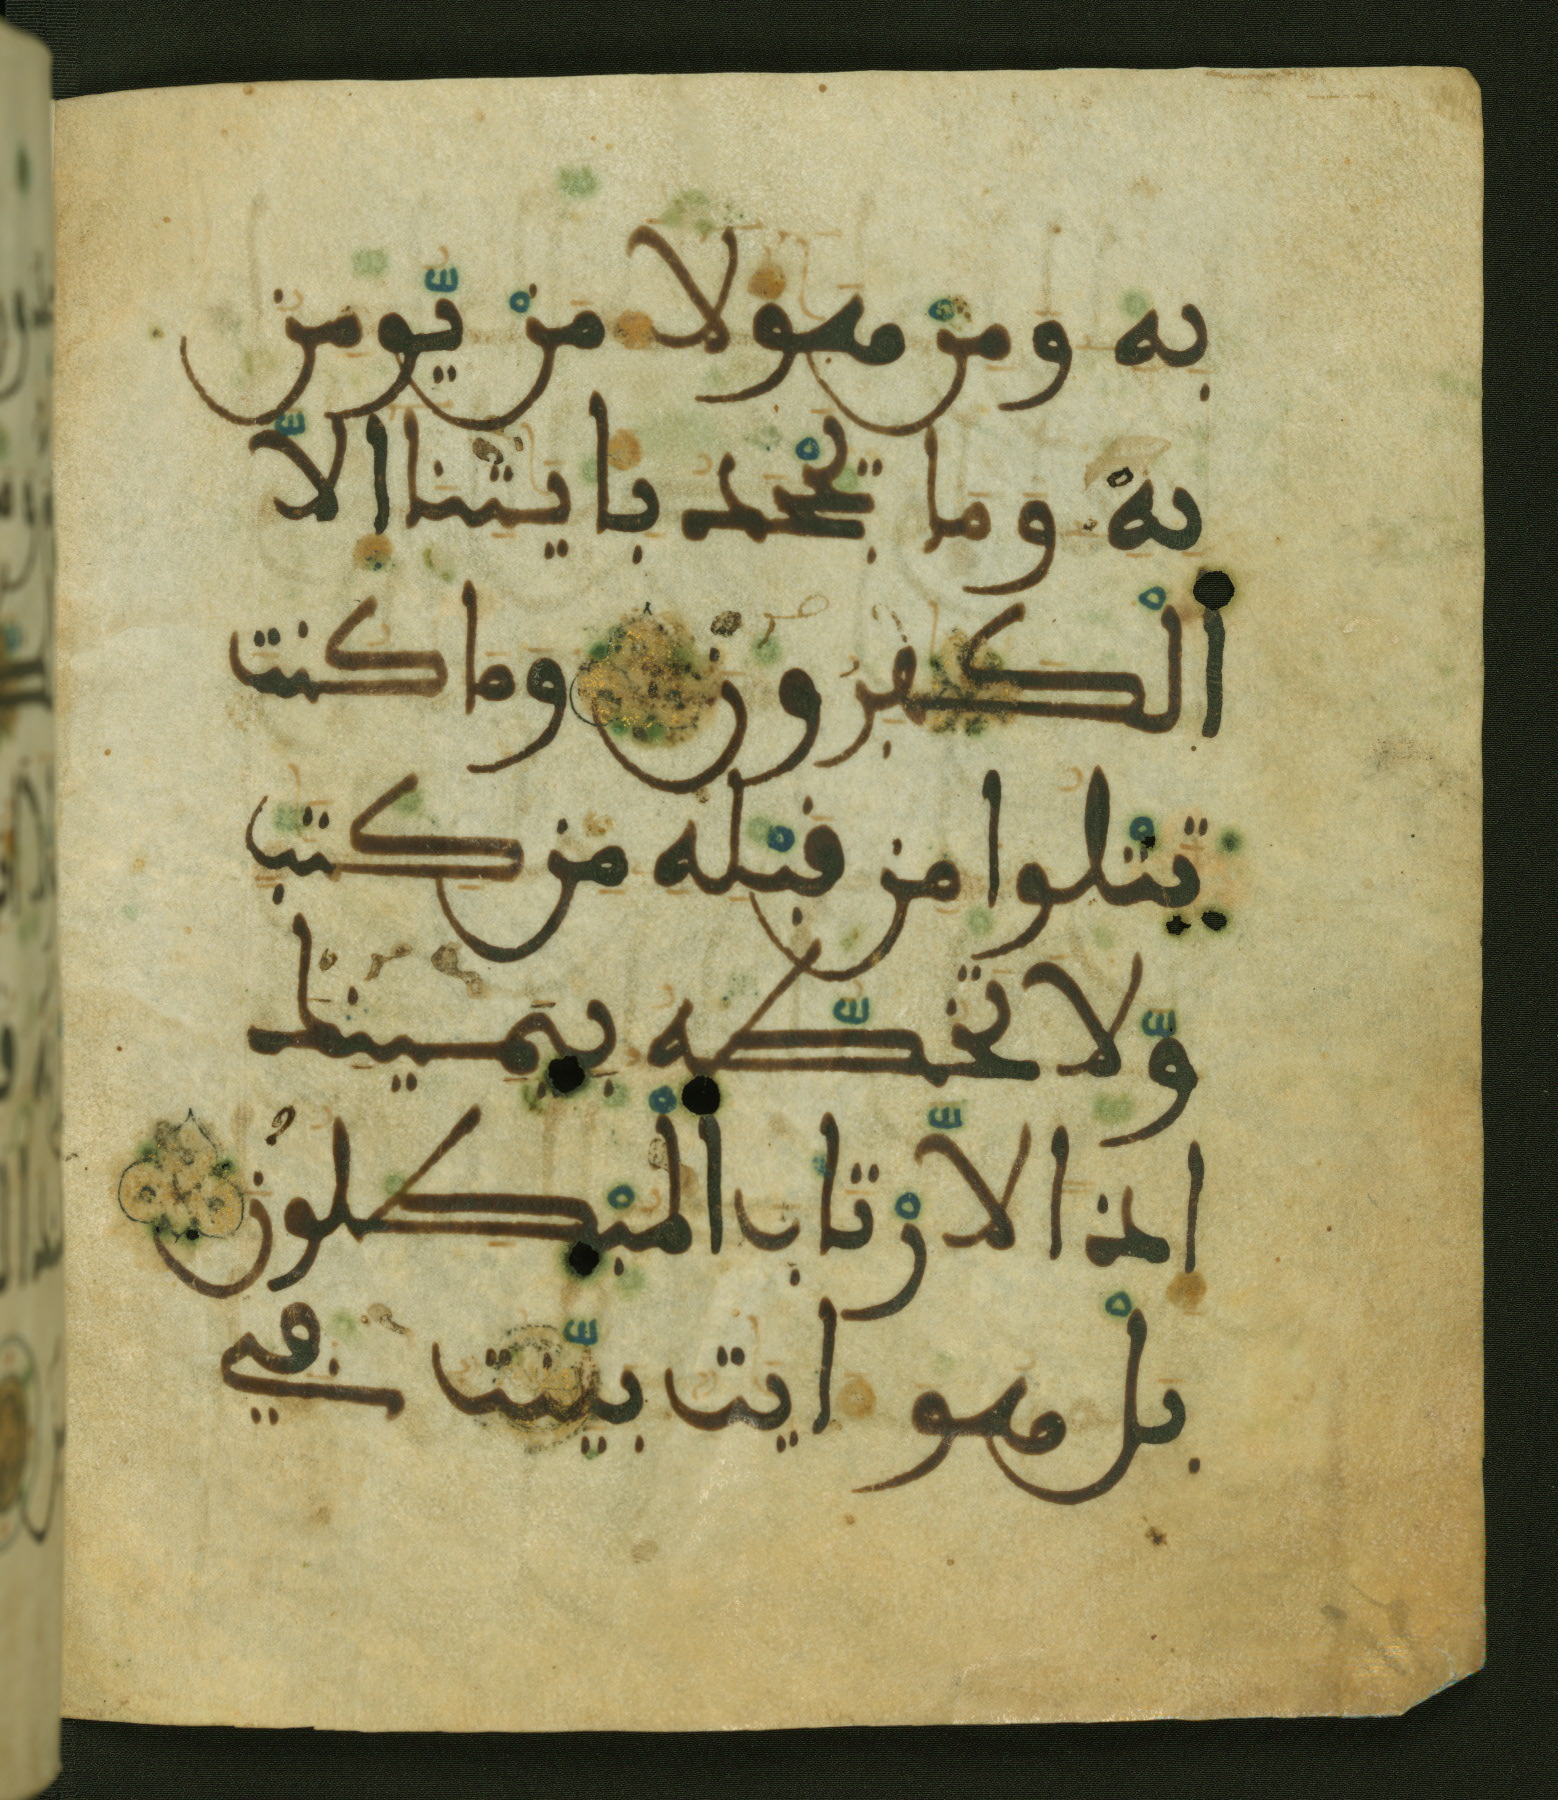 به ومن هولا من يومن
به وما يجحد بايتنا الا
الكفرون وما كنت
تتلوا من قبله من كتب
ولا تخطه بيمينك
اذا لارتاب المبطلون
بل هو ايت بينت في